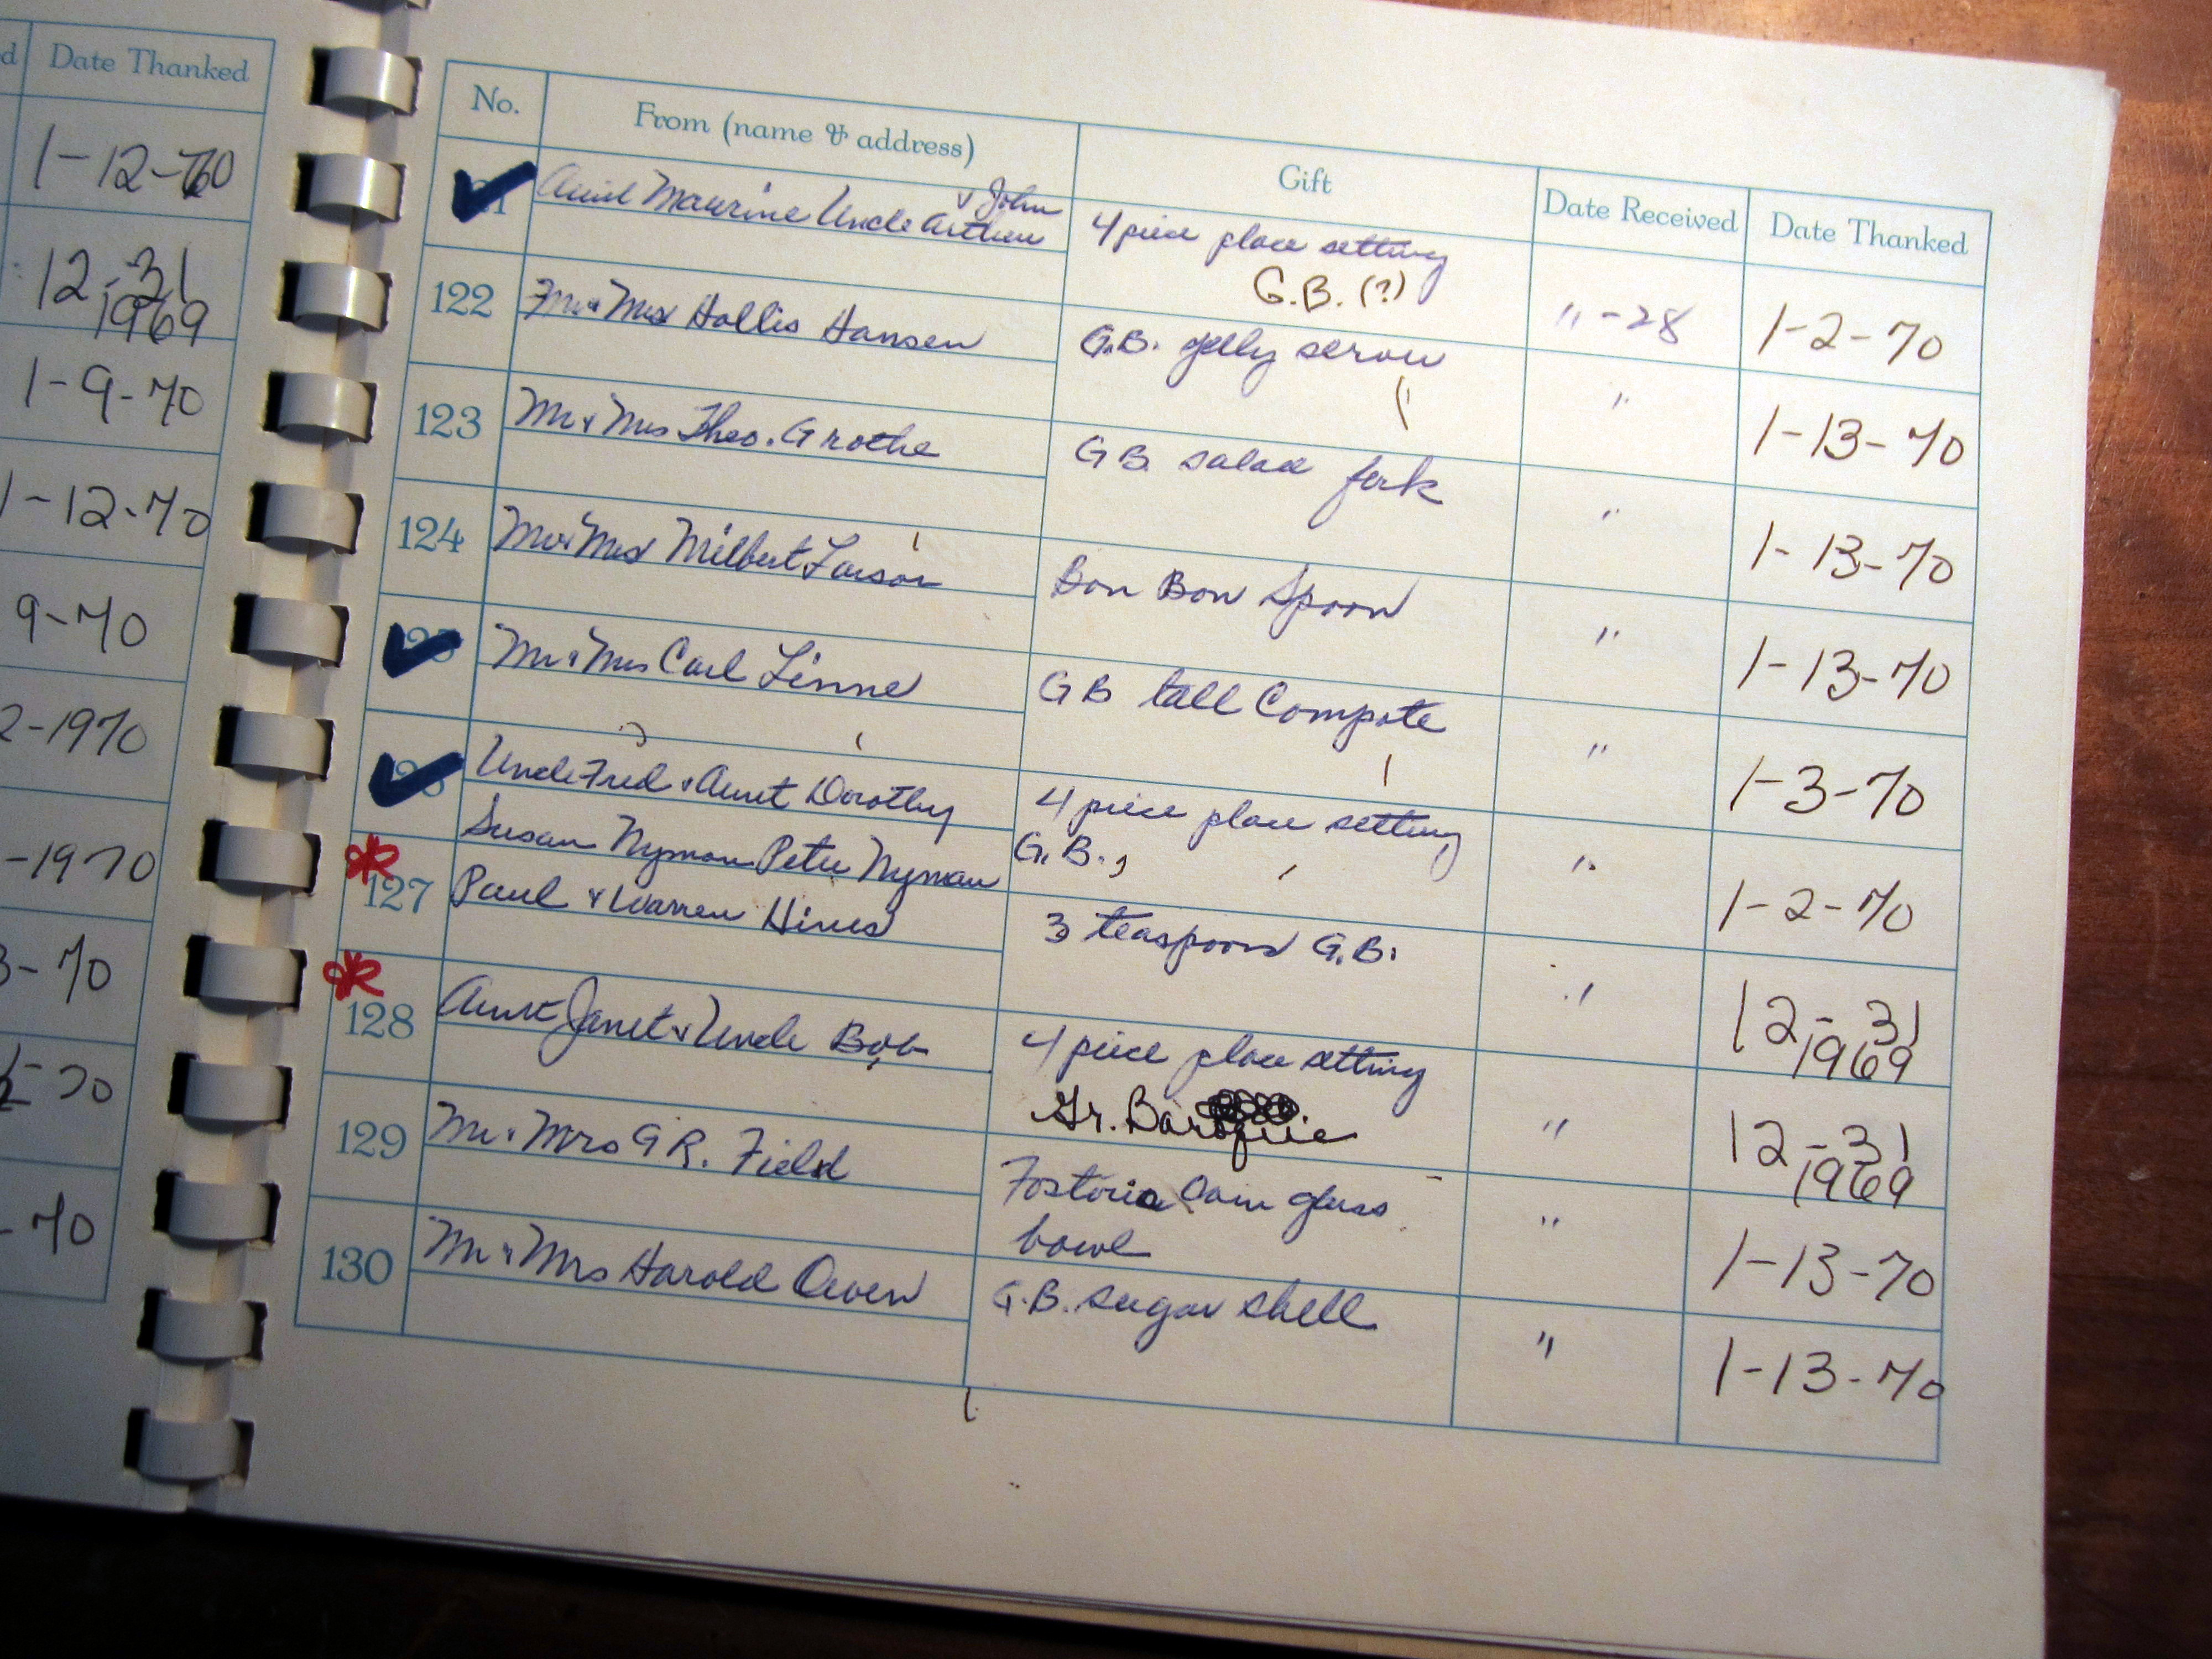 d Date Thanked
1-12-70
12-31
1969
1-9-70
1-12-70
9-70
2-1970
-1970
3-70
-70
-70
No. From (name & address) Gift Date Received Date Thanked
Aunt Maurine Uncle Arthur & John 4 piece place setting " -28 1-2-70
G.B. (?)
122 Mr & Mrs Hollis Hansen G.B. jelly server " 1-13-70
123 Mr & Mrs Theo. Grothe G B. salad fork " 1-13-70
124 Mr & Mrs Milbert Larson Bon Bon Spoon " 1-13-70
125 Mr & Mrs Carl Linne GB tall Compote " 1-3-70
126 Uncle Fred & Aunt Dorothy 4 piece place setting " 1-2-70
G.B.,
Susan Nyman Peter Nyman
127 Paul & Warren Hines 3 teaspoons G.B. " 12-31
1969
128 Aunt Janet & Uncle Bob 4 piece place setting " 12-31
Gr. Baroque 1969
129 Mr & Mrs G R. Field Fostoria Coin glass " 1-13-70
bowl
130 Mr & Mrs Harold Owen G.B. sugar shell " 1-13-70